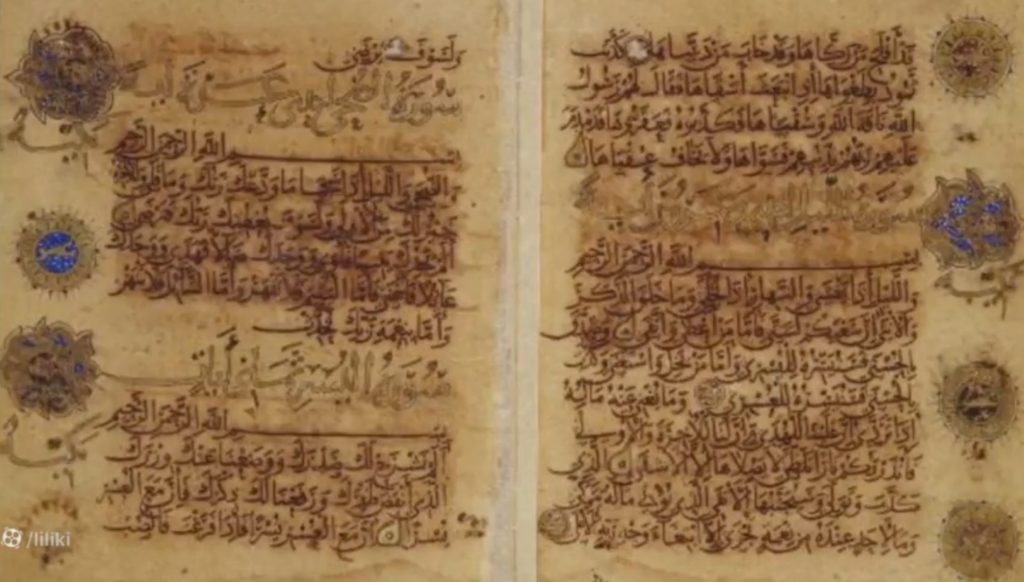 قد أفلح من زكاها وقد خاب من دساها كذبت
ثمود بطغواها إذ انبعث أشقاها فقال لهم رسول
الله ناقة الله وسقياها فكذبوه فعقروها فدمدم
عليهم ربهم بذنبهم فسواها ولا يخاف عقباها
سورة الليل
بسم الله الرحمن الرحيم
والليل إذا يغشى والنهار إذا تجلى وما خلق الذكر
والأنثى إن سعيكم لشتى فأما من أعطى واتقى وصدق
بالحسنى فسنيسره لليسرى وأما من بخل واستغنى وكذب
بالحسنى فسنيسره للعسرى وما يغني عنه ماله
إذا تردى إن علينا للهدى وإن لنا للآخرة والأولى
فأنذرتكم نارا تلظى لا يصلاها إلا الأشقى الذي
كذب وتولى وسيجنبها الأتقى الذي يؤتي ماله يتزكى
وما لأحد عنده من نعمة تجزى إلا ابتغاء وجه ربه
مكية
ولسوف يرضى
سورة الضحى إحدى عشرة آية
بسم الله الرحمن الرحيم
والضحى والليل إذا سجى ما ودعك ربك وما قلى
خير لك من الأولى ولسوف يعطيك ربك فترضى
ألم يجدك يتيما فآوى ووجدك ضالا فهدى ووجدك
عائلا فأغنى فأما اليتيم فلا تقهر وأما السائل فلا تنهر
وأما بنعمة ربك فحدث
سورة ألم نشرح ثماني آيات
بسم الله الرحمن الرحيم
ألم نشرح لك صدرك ووضعنا عنك وزرك
الذي أنقض ظهرك ورفعنا لك ذكرك فإن مع العسر
يسرا إن مع العسر يسرا فإذا فرغت فانصب
مكية
مكية
/liliki